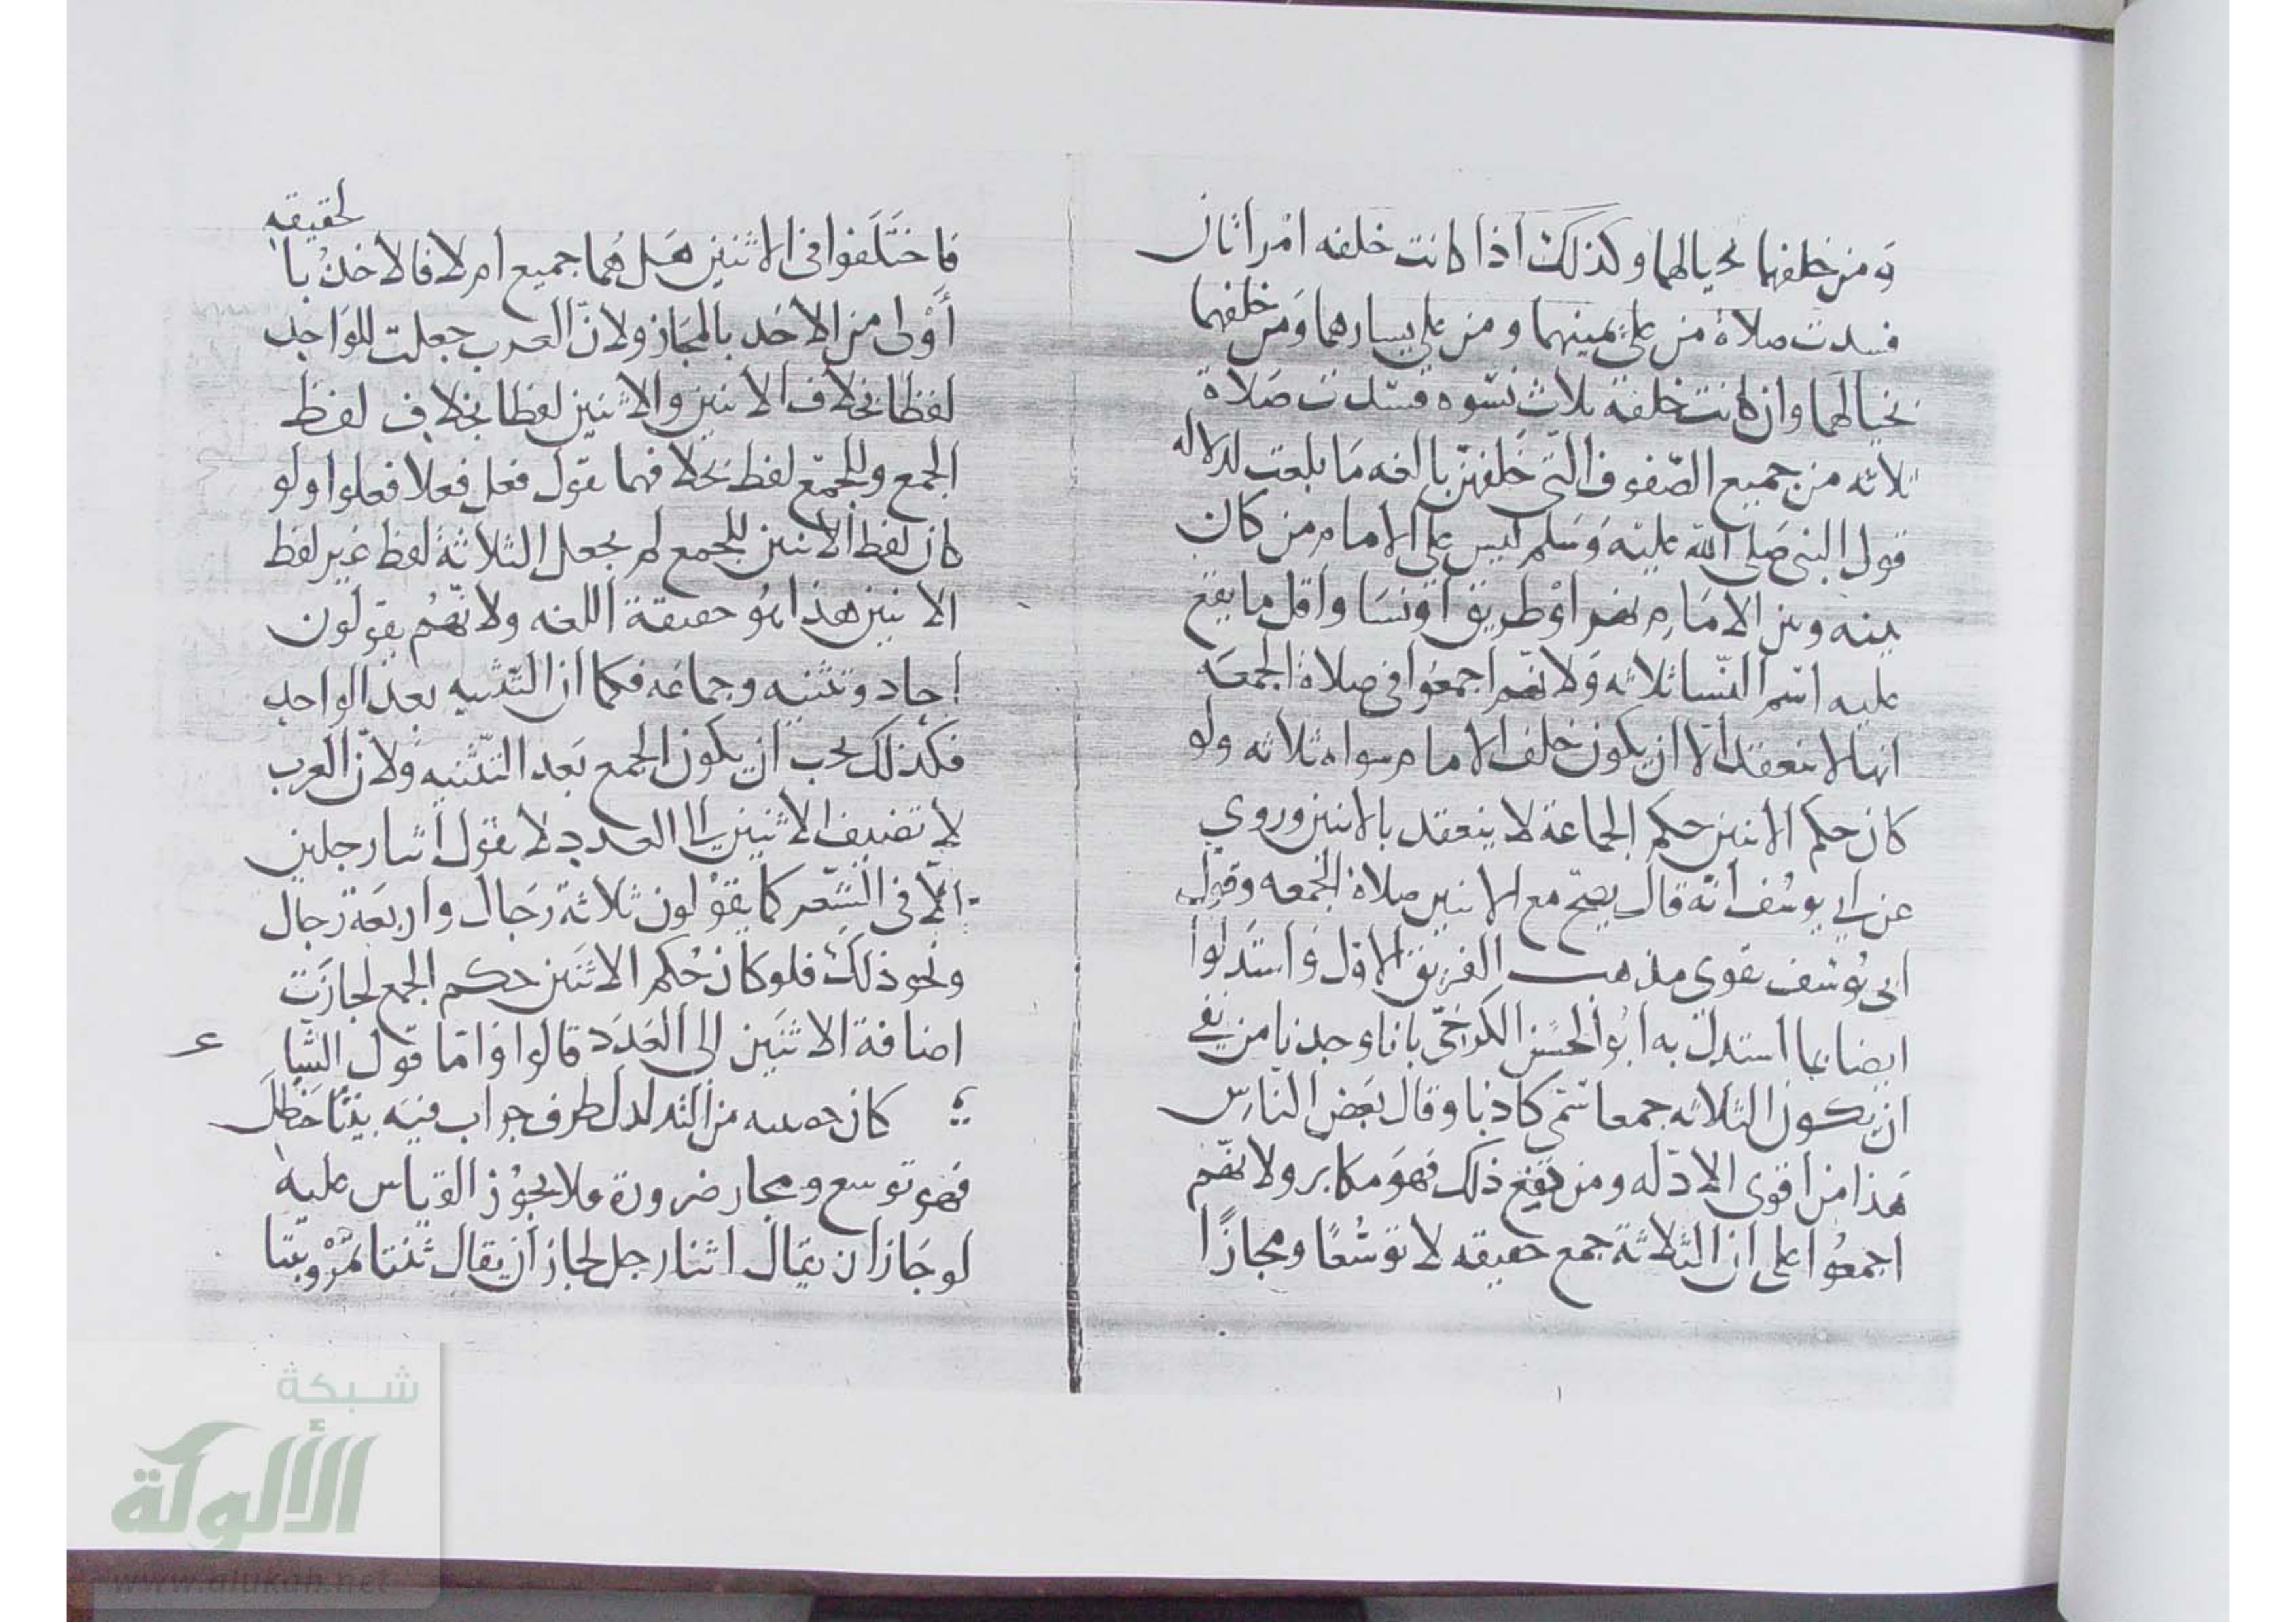 ومن خلفهما بحيالهما وكذلك اذا كانت خلفه امراتان
فسدت صلاة من على يمينهما ومن على يسارهما ومن خلفهما
بحيالهما وان كانت خلفه ثلاث نسوه فسدت صلاة
ثلاثه من جميع الصفوف التي خلفهن بالغه ما بلغت لدلاله
قول النبي صلى الله عليه وسلم ليس على الامام من كان
بينه وبين الامام نهر او طريق او نسا واقل ما يقع
عليه اسم النسا ثلاثه ولانهم اجمعوا في صلاة الجمعه
انها لا تنعقد الا ان يكون خلف الامام سواه ثلاثه ولو
كان حكم الاثنين حكم الجماعة لا ينعقد بالاثنين وروي
عن ابي يوسف انه قال يصح مع الاثنين صلاة الجمعه وقول
ابي يوسف يقوي مذهب الفريق الاول واستدلوا
ايضا بما استدل به ابو الحسن الكرخي بانا وجدنا من نفي
ان يكون الثلاثه جمعا سمي كاذبا وقال بعض الناس
هذا من اقوى الادله ومن نفى ذلك فهو مكابر ولانهم
اجمعوا على ان الثلاثة جمع حقيقه لا توسعا ومجازا
فاختلفوا في الاثنين هل هما جميع ام لا فالاخذ با
لحقيقه
أولى من الاخذ بالمجاز ولان العرب جعلت للواحد
لفظا بخلاف الاثنين والاثنين لفظا بخلاف لفظ
الجمع وللجمع لفظ بخلافهما تقول فعل فعلا فعلوا ولو
كان لفظ الاثنين للجمع لم يجعل الثلاثة لفظ غير لفظ
الاثنين هذا هو حقيقة اللغه ولانهم يقولون
احاد وتثنيه وجماعه فكما ان التثنيه بعد الواحد
فكذلك يجب ان يكون الجمع بعد التثنيه ولان العرب
لا تضيف الاثنين الى العدد لا تقول اثنا رجلين
الا في الشعر كما يقولون ثلاثة رجال واربعة رجال
ونحو ذلك فلو كان حكم الاثنين حكم الجمع لجازت
اضافة الاثنين الى العدد قالوا واما قول الشا
عر
كان من التدلدل ظرف جراب فيه ثنتا حنظل
فهو توسع ومجاز ضرورة فلا يجوز القياس عليه
لو جاز ان يقال اثنا رجل لجاز ان يقال ثنتا
شبكة
الألوكة
www.alukah.net